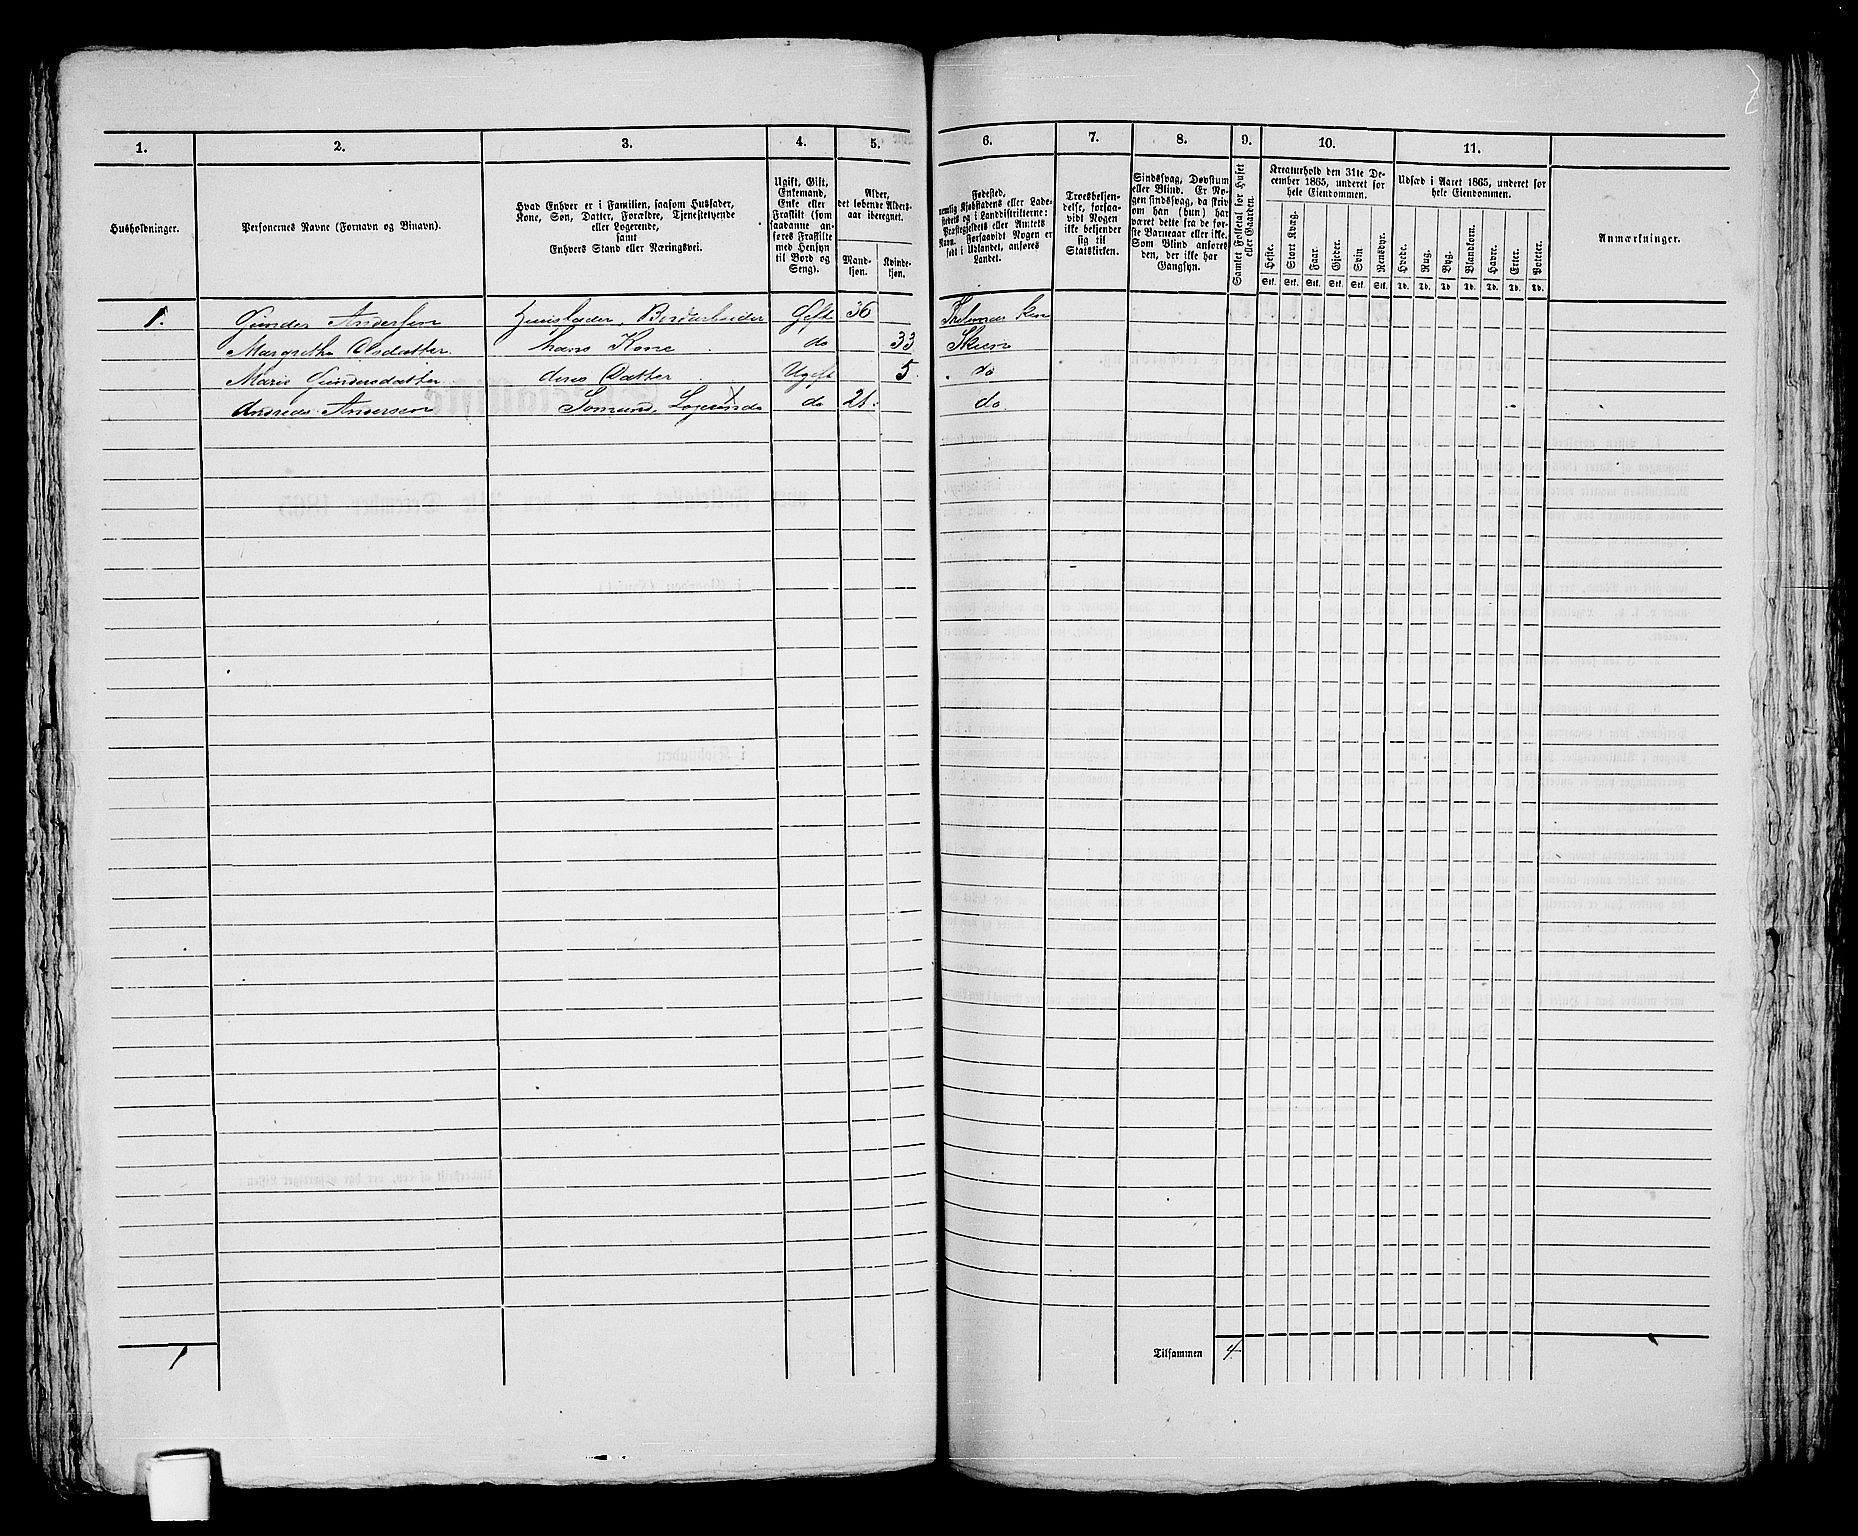 1. 2. 3. 4. 5. 6. 7. 8. 9. 10. 11.
Husholdninger.
Personernes Navne (Fornavn og Binavn).
Hvad Enhver er i Familien, saasom Husfader,
Kone, Søn, Datter, Forældre, Tjenestetyende
eller Logerende,
samt
Enhvers Stand eller Næringsvei.
Ugift, Gift,
Enkemand,
Enke eller
Fraskilt (som
saadanne an-
føres Fraskilte
med Hensyn
til Bord og
Seng).
Alder,
det løbende Alders-
aar iberegnet.
Mand-
kjøn.
Kvinde-
kjøn.
Fødested,
nemlig Kjøbstadens eller Lade-
stedets og i Landdistrikterne:
Præstegjeldets eller Amtets
Navn. Forsaavidt Nogen er
født i Udlandet, anføres
Landet.
Troesbekjen-
delse, forsaa-
vidt Nogen
ikke bekjender
sig til
Statskirken.
Sindssvag, Døvstum
eller Blind. Er No-
gen sindssvag, da skriv
om han (hun) har
været dette fra de før-
ste Barneaar eller ikke.
Som Blind anføres
den, der ikke har
Gangsyn.
Samlet Folketal for Huset
eller Gaarden.
Kreaturhold den 31te De-
cember 1865, underet for
hele Eiendommen.
Heste. Stort Kvæg. Faar. Gjeder. Svin Rensdyr.
Stk. Stk. Stk. Stk. Stk. Stk.
Udsæd i Aaret 1865, underet for
hele Eiendommen.
Hvede. Rug. Byg. Blandkorn. Havre. Erter. Poteter.
Td. Td. Td Td. Td. Td. Td.
Anmærkninger.
1. Gunder Andersen Huusfader, Bordarbeider Gift 36
Margrethe Olsdatter hans Kone do 33 Skien
Marie Gundersdatter deres Datter Ugift 5 do
Andreas Andersen Sømand, Logerende do 21 do
1 Tilsammen 4